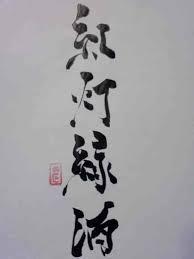 紅灯緑酒